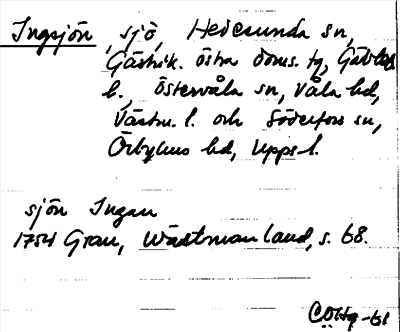 Ingsjön, sjö, Hedesunda sn,
Gästrik. östra doms. tg, Gävleb.
l., Östervåla sn, Våla hd,
Västm. l. och Söderfors sn,
Örbyhus hd, Upps. l.
sjön Ingan
1754 Grau, Wästmanland, s. 68.
COHg -61